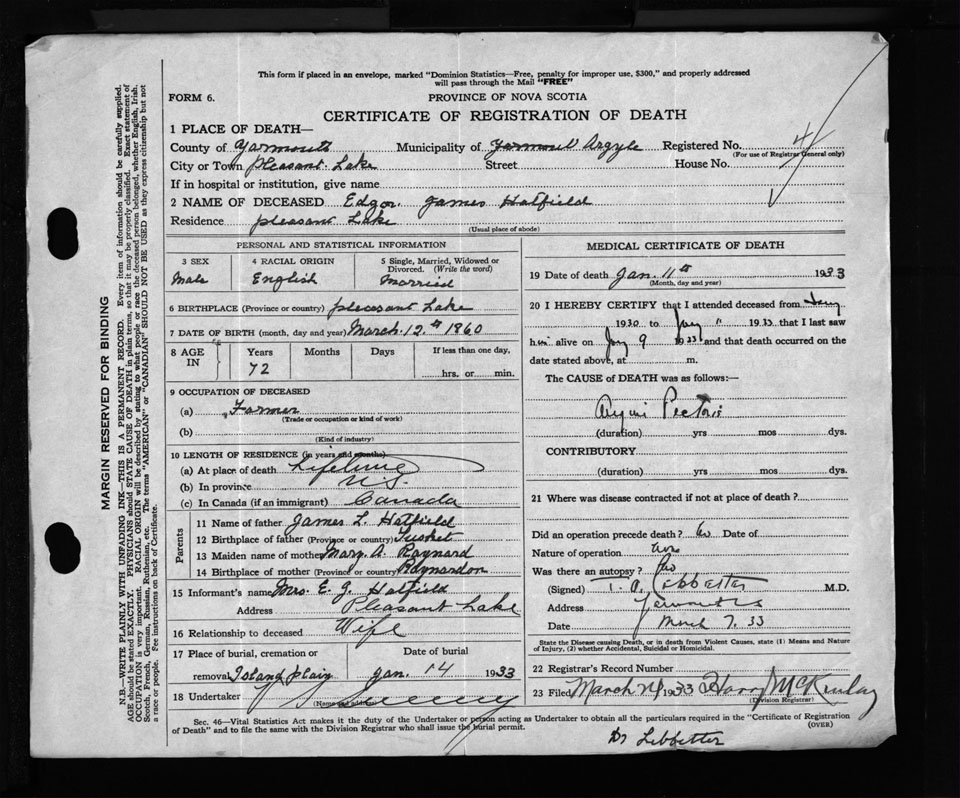 This form if placed in an envelope, marked "Dominion Statistics—Free, penalty for improper use, $300," and properly addressed
will pass through the Mail "FREE"
FORM 6.
PROVINCE OF NOVA SCOTIA
CERTIFICATE OF REGISTRATION OF DEATH
1 PLACE OF DEATH—
County of Yarmouth Municipality of Argyle Registered No. 4
(For use of Registrar General only)
City or Town Pleasant Lake Street House No.
If in hospital or institution, give name
2 NAME OF DECEASED Edgar James Hatfield
Residence Pleasant Lake
(Usual place of abode)
PERSONAL AND STATISTICAL INFORMATION
3 SEX 4 RACIAL ORIGIN 5 Single, Married, Widowed or
Divorced. (Write the word)
Male English Married
6 BIRTHPLACE (Province or country) Pleasant Lake
7 DATE OF BIRTH (month, day and year) March 12th 1860
8 AGE IN Years Months Days If less than one day,
72 hrs. or min.
9 OCCUPATION OF DECEASED
(a) Farmer
(Trade or occupation or kind of work)
(b)
(Kind of industry)
10 LENGTH OF RESIDENCE (in years and months)
(a) At place of death Lifetime
(b) In province N.S.
(c) In Canada (if an immigrant) Canada
Parents
11 Name of father James L. Hatfield
12 Birthplace of father (Province or country) Tusket
13 Maiden name of mother Mary A. Raynard
14 Birthplace of mother (Province or country) Raynardon
15 Informant's name Mrs. E. J. Hatfield
Address Pleasant Lake
16 Relationship to deceased Wife
17 Place of burial, cremation or Date of burial
removal Island Plain Jan. 14 1933
18 Undertaker V S Sweeny
(Name and address)
MEDICAL CERTIFICATE OF DEATH
19 Date of death Jan. 11th 1933
(Month, day and year)
20 I HEREBY CERTIFY that I attended deceased from
1930 to Jany 11 1933 that I last saw
him alive on Jany 9 1933 and that death occurred on the
date stated above, at m.
The CAUSE of DEATH was as follows:—
Angini Pectoris
(duration) yrs mos dys.
CONTRIBUTORY
(duration) yrs mos dys.
21 Where was disease contracted if not at place of death?
Did an operation precede death? No Date of
Nature of operation
Was there an autopsy? No
(Signed) T. A. Lebbetter M.D.
Address Yarmouth
Date March 7. 33
State the Disease causing Death, or in death from Violent Causes, state (1) Means and Nature
of Injury, (2) whether Accidental, Suicidal or Homicidal.
22 Registrar's Record Number
23 Filed March 1933 Harry McKinlay
(Division Registrar)
Sec. 46—Vital Statistics Act makes it the duty of the Undertaker or person acting as Undertaker to obtain all the particulars required in the "Certificate of Registration
of Death" and to file the same with the Division Registrar who shall issue the burial permit.
(OVER)
Dr Lebbetter
MARGIN RESERVED FOR BINDING
N.B.—WRITE PLAINLY WITH UNFADING INK—THIS IS A PERMANENT RECORD. Every item of information should be carefully supplied.
AGE should be stated EXACTLY. PHYSICIANS should STATE CAUSE OF DEATH in plain terms, so that it may be properly classified. Exact statement of
OCCUPATION is very important. RACIAL ORIGIN will be described by stating to what people or race the deceased person belonged, whether English, Irish,
Scotch, French, German, Russian, Ruthenian, etc. The terms "AMERICAN" or "CANADIAN" SHOULD NOT BE USED as they express citizenship but not
a race or people. Fee instructions on back of Certificate.